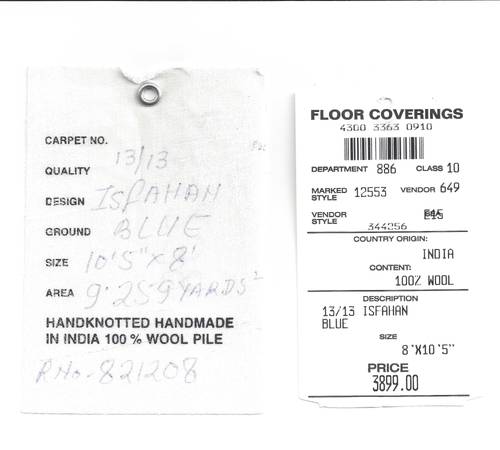 CARPET NO.
QUALITY 13/13
DESIGN ISFAHAN
GROUND BLUE
SIZE 10'5" X 8'
AREA 9.259 YARDS²
HANDKNOTTED HANDMADE
IN INDIA 100 % WOOL PILE
R.No-821208
FLOOR COVERINGS
4300 3363 0910
DEPARTMENT 886 CLASS 10
MARKED STYLE 12553 VENDOR 649
VENDOR STYLE
344256
COUNTRY ORIGIN:
INDIA
CONTENT:
100% WOOL
DESCRIPTION
13/13 ISFAHAN
BLUE
SIZE
8'X10'5"
PRICE
3899.00